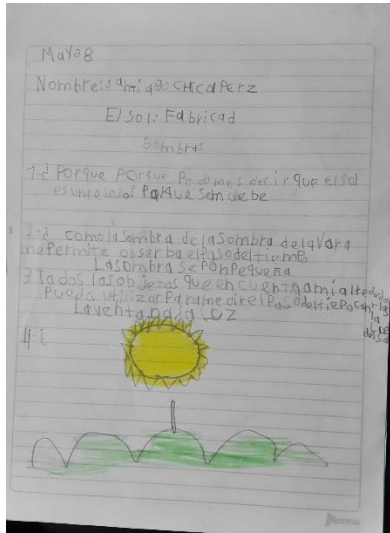 Mayo 8
Nombre: Santiago CHica Perz
El Sol: Fabricad
Sombras
1-¿ Porque Porque Podemos decir que el sol
es un reloj? Palque Sem be
2-¿ como la Sombra de la Sombra de la Vara
me Permite obserba el Paso del tiemp
La sombra se Pon Pequeña
3 Todos las objetas que en cuentra mi altededor
Puedo utilizar Para me el Paso del tiepo con la
La ventana La Luz
4-¿
Norma